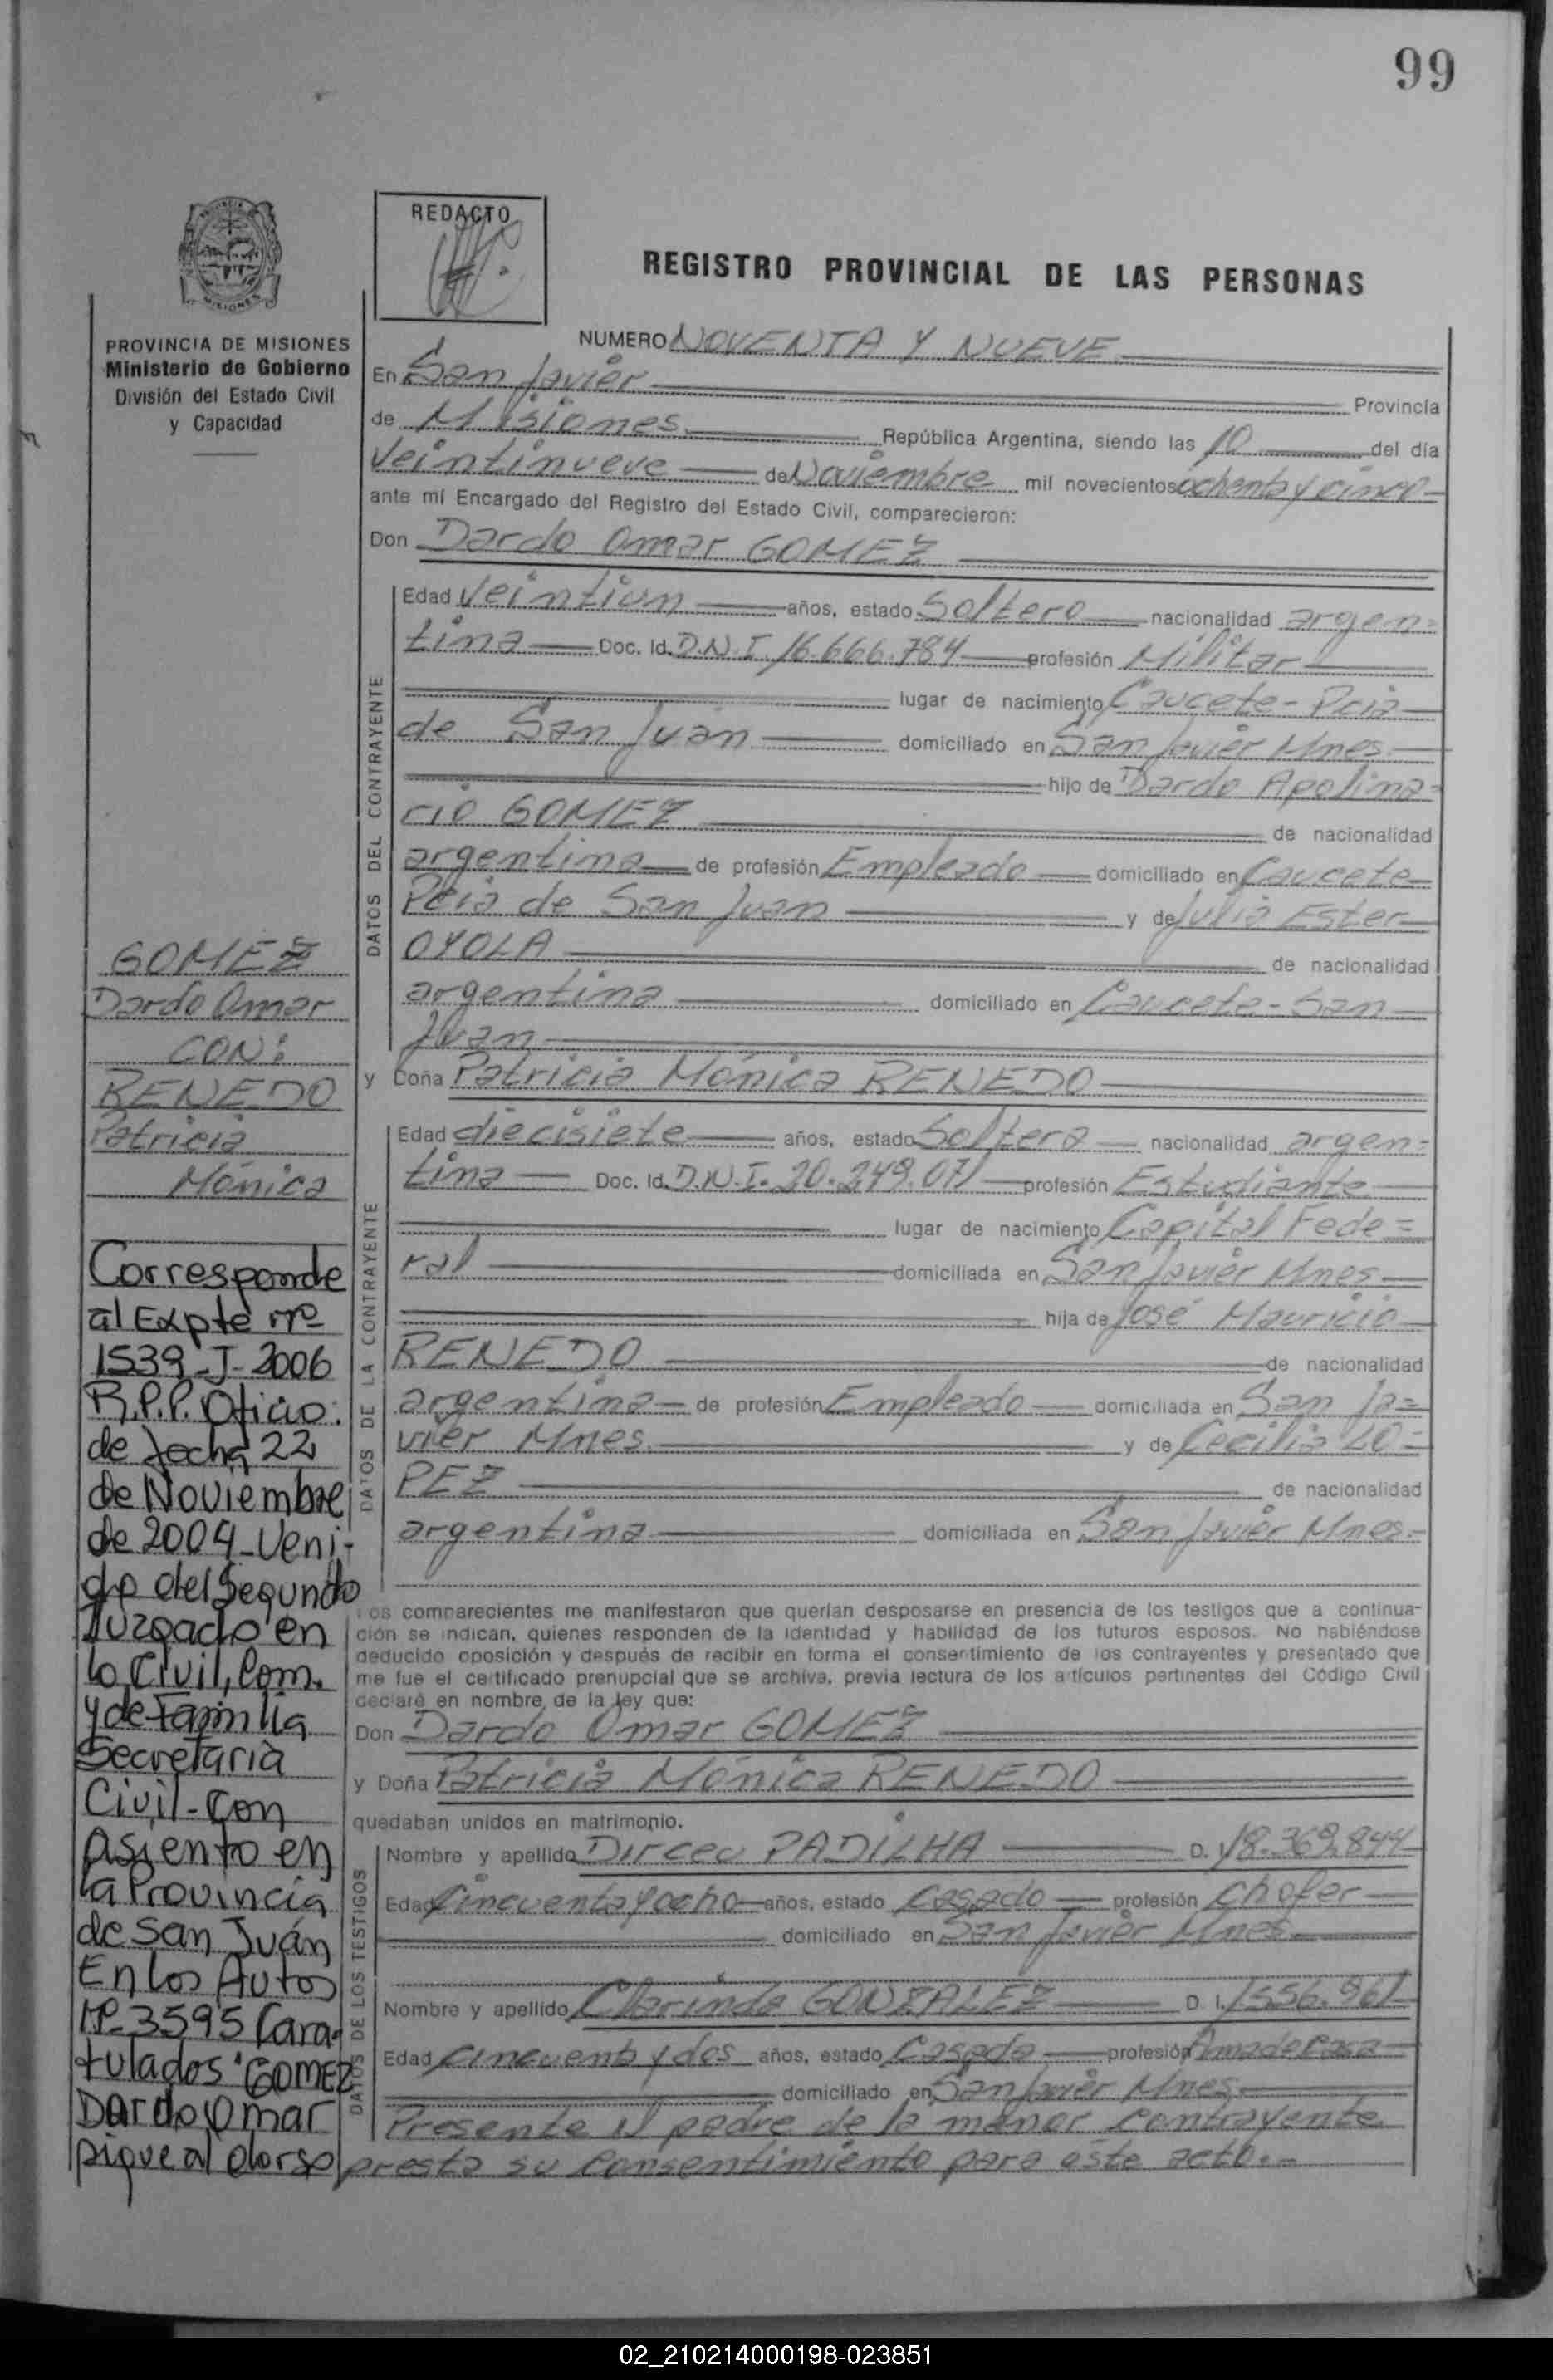 99
REDACTO
REGISTRO PROVINCIAL DE LAS PERSONAS
MISIONES
PROVINCIA DE MISIONES
Ministerio de Gobierno
División del Estado Civil
y Capacidad
NUMERO NOVENTA Y NUEVE
En San Javier Provincia
de Misiones República Argentina, siendo las 10 del día
Veintinueve de Noviembre mil novecientos ochenta y cinco
ante mí Encargado del Registro del Estado Civil, comparecieron:
Don Dardo Omar GOMEZ
DATOS DEL CONTRAYENTE
Edad Veintiun años, estado Soltero nacionalidad argen=
tina Doc. Id. D.N.I. 16.666.784 profesión Militar
lugar de nacimiento Caucete - Pcia
de San Juan domiciliado en San Javier Mnes.
hijo de Dardo Apolina=
rio GOMEZ de nacionalidad
argentina de profesión Empleado domiciliado en Caucete
Pcia de San Juan y de Julia Ester
OYOLA de nacionalidad
argentina domiciliado en Caucete - San
Juan
y Doña Patricia Mónica RENEDO
DATOS DE LA CONTRAYENTE
Edad diecisiete años, estado Soltera nacionalidad argen=
tina Doc. Id. D.N.I. 20.249.071 profesión Estudiante
lugar de nacimiento Capital Fede=
ral domiciliada en San Javier Mnes
hija de José Mauricio
RENEDO de nacionalidad
argentina de profesión Empleado domiciliada en San Ja=
vier Mnes. y de Cecilia LO=
PEZ de nacionalidad
argentina domiciliada en San Javier Mnes.
Los comparecientes me manifestaron que querían desposarse en presencia de los testigos que a continua-
ción se indican, quienes responden de la identidad y habilidad de los futuros esposos. No habiéndose
deducido oposición y después de recibir en forma el consentimiento de los contrayentes y presentado que
me fue el certificado prenupcial que se archiva, previa lectura de los artículos pertinentes del Código Civil
declaré en nombre de la ley que:
Don Dardo Omar GOMEZ
y Doña Patricia Mónica RENEDO
quedaban unidos en matrimonio.
DATOS DE LOS TESTIGOS
Nombre y apellido Dirceu PADILHA D. I. 18.369.844
Edad Cincuenta y ocho años, estado Casado profesión Chofer
domiciliado en San Javier Mnes.
Nombre y apellido Clarinda GONZALEZ D. I. 1.556.961
Edad cincuenta y dos años, estado Casada profesión Ama de Casa
domiciliado en San Javier Mnes.
Presente el padre de la menor contrayente
presta su consentimiento para este acto.=
GOMEZ
Dardo Omar
CON:
RENEDO
Patricia
Mónica
Corresponde
al Expte nº
1539-J-2006
R.P.P. Oficio.
de fecha 22
de Noviembre
de 2004-Veni-
do del Segundo
Juzgado en
lo Civil, Com.
y de Familia
Secretaria
Civil-Con
asiento en
la Provincia
de San Juán
En los Autos
Nº 3595 Cara-
tulados "GOMEZ
Dardo Omar
sigue al dorso
02_210214000198-023851